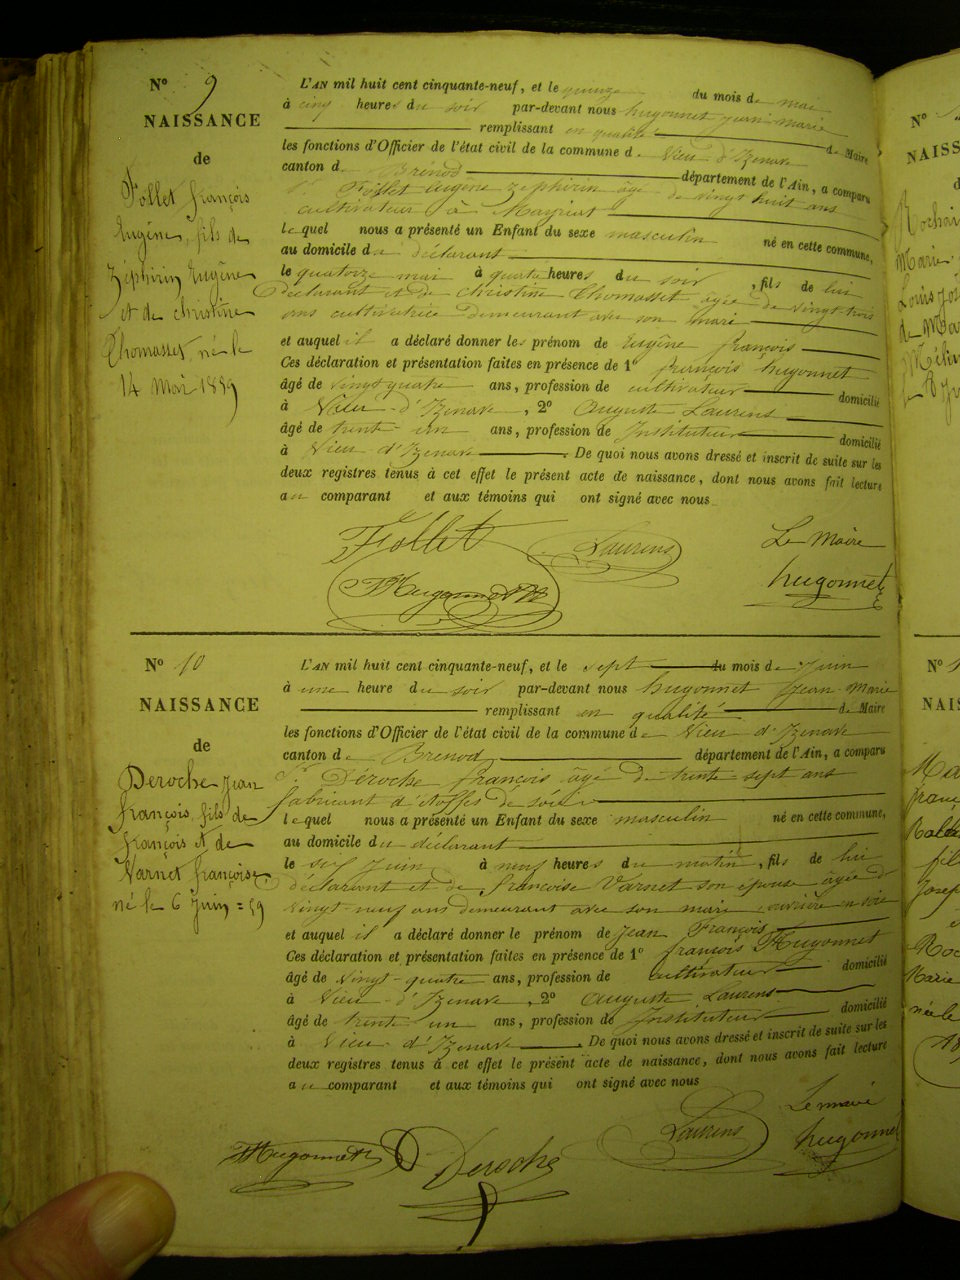 N° 9
NAISSANCE
de
Follet françois
Eugène, fils de
Zéphirin Eugène
et de christine
Thomasset, né le
14 Mai 1859
L'AN mil huit cent cinquante-neuf, et le quinze du mois de mai
à cinq heures du soir par-devant nous hugonnet Jean-Marie
remplissant en qualité de Maire
les fonctions d'Officier de l'état civil de la commune de Vieu d'Izenave
canton de Brénod département de l'Ain, a comparu
Sr Follet Eugène Zéphirin âgé de vingt huit ans
cultivateur à
lequel nous a présenté un Enfant du sexe masculin né en cette commune,
au domicile du déclarant
le quatorze mai à quatre heures du soir, fils de lui
Déclarant et de Christine Thomasset âgée de vingt-trois
ans cultivatrice demeurant avec son mari
et auquel il a déclaré donner les prénom de Eugène françois
Ces déclaration et présentation faites en présence de 1° françois hugonnet
âgé de vingt quatre ans, profession de cultivateur domicilié
à Vieu-d'Izenave, 2° Auguste Laurens
âgé de trente-un ans, profession de Instituteur domicilié
à Vieu d'Izenave. De quoi nous avons dressé et inscrit de suite sur les
deux registres tenus à cet effet le présent acte de naissance, dont nous avons fait lecture
au comparant et aux témoins qui ont signé avec nous
Follet Laurens Le Maire
Hugonnet hugonnet
N° 10
NAISSANCE
de
Deroche Jean
françois, fils de
françois et de
Varnet françoise
né le 6 Juin = 59
L'AN mil huit cent cinquante-neuf, et le sept du mois de Juin
à une heure du soir par-devant nous hugonnet Jean-Marie
remplissant en qualité de Maire
les fonctions d'Officier de l'état civil de la commune de Vieu d'Izenave
canton de Brenod département de l'Ain, a comparu
Sr Déroche françois âgé de trente-sept ans
fabricant d'étoffes de soie
lequel nous a présenté un Enfant du sexe masculin né en cette commune,
au domicile du déclarant
le six Juin à neuf heures du matin, fils de lui
déclarant et de françoise Varnet son épouse âgée de
vingt-neuf ans demeurant avec son mari ouvrière en soie
et auquel il a déclaré donner le prénom de Jean François
Ces déclaration et présentation faites en présence de 1° françois Hugonnet
âgé de vingt-quatre ans, profession de cultivateur domicilié
à Vieu-d'Izenave, 2° Auguste Laurens
âgé de trente un ans, profession de Instituteur domicilié
à Vieu-d'Izenave. De quoi nous avons dressé et inscrit de suite sur les
deux registres tenus à cet effet le présent acte de naissance, dont nous avons fait lecture
au comparant et aux témoins qui ont signé avec nous
Laurens Le maire
Hugonnet Deroche hugonnet